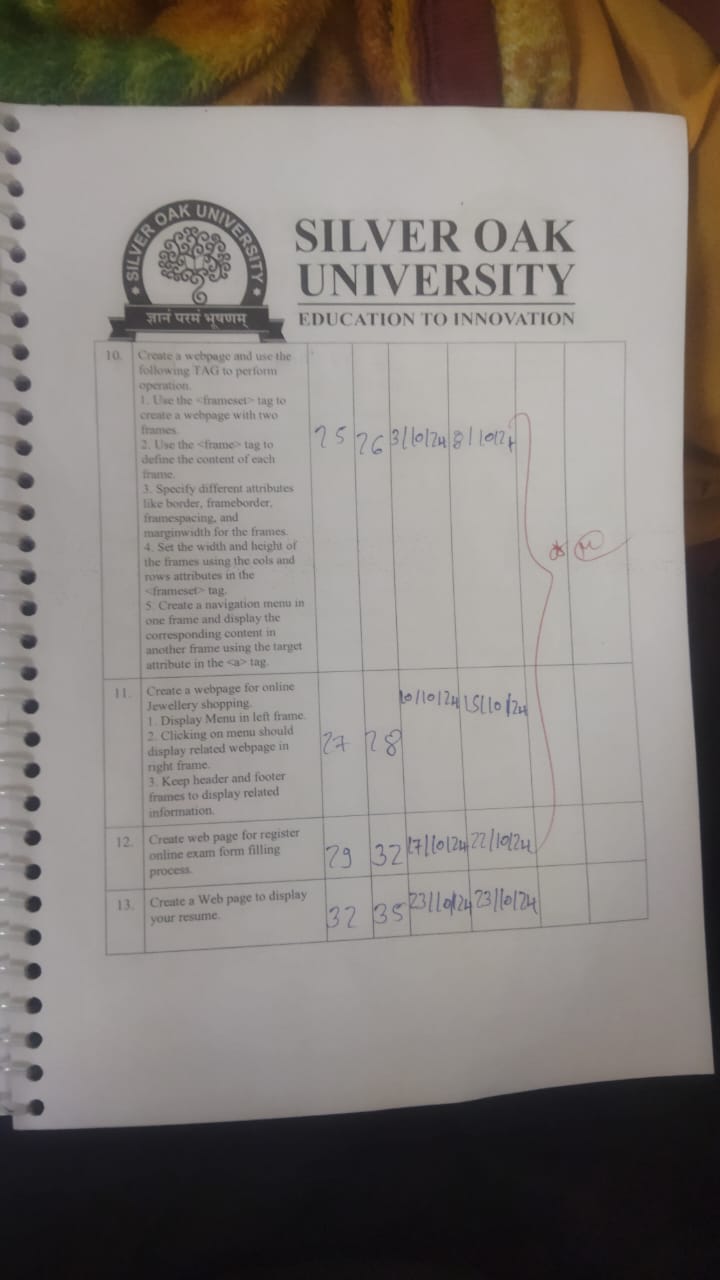 SILVER OAK UNIVERSITY
ज्ञानं परमं भूषणम्
SILVER OAK
UNIVERSITY
EDUCATION TO INNOVATION
10. Create a webpage and use the
following TAG to perform
operation.
1. Use the <frameset> tag to
create a webpage with two
frames.
2. Use the <frame> tag to
define the content of each
frame.
3. Specify different attributes
like border, frameborder,
framespacing, and
marginwidth for the frames.
4. Set the width and height of
the frames using the cols and
rows attributes in the
<frameset> tag.
5. Create a navigation menu in
one frame and display the
corresponding content in
another frame using the target
attribute in the <a> tag.
25 26 3/10/24 8/10/24
11. Create a webpage for online
Jewellery shopping.
1. Display Menu in left frame.
2. Clicking on menu should
display related webpage in
right frame.
3. Keep header and footer
frames to display related
information.
27 28 10/10/24 15/10/24
12. Create web page for register
online exam form filling
process.
29 32 17/10/24 22/10/24
13. Create a Web page to display
your resume.
32 35 23/10/24 23/10/24